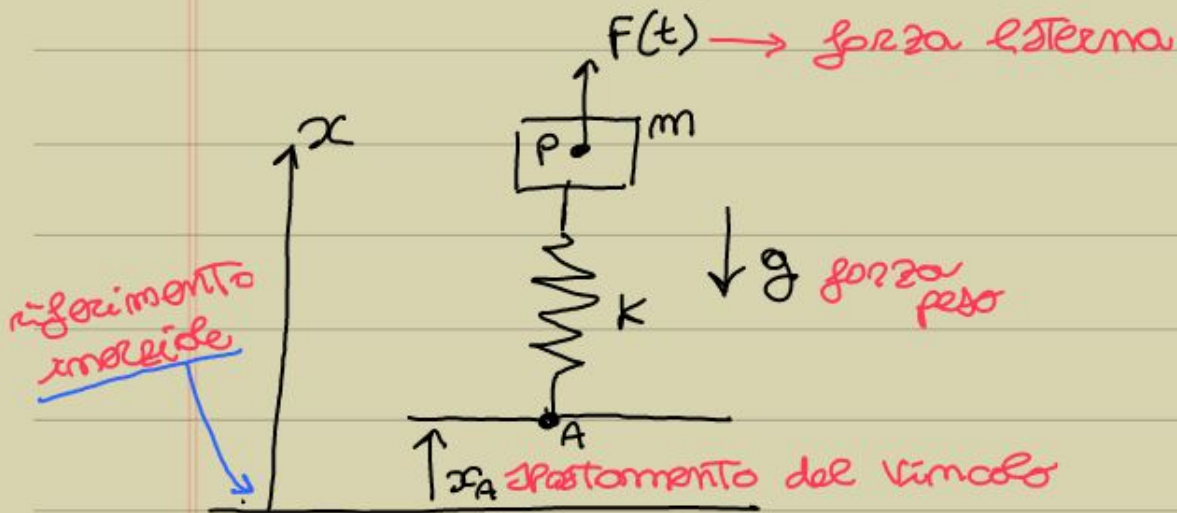 F(t) → forza esterna
x
P
m
g forza
peso
riferimento
inerziale
K
A
x_A spostamento del vincolo